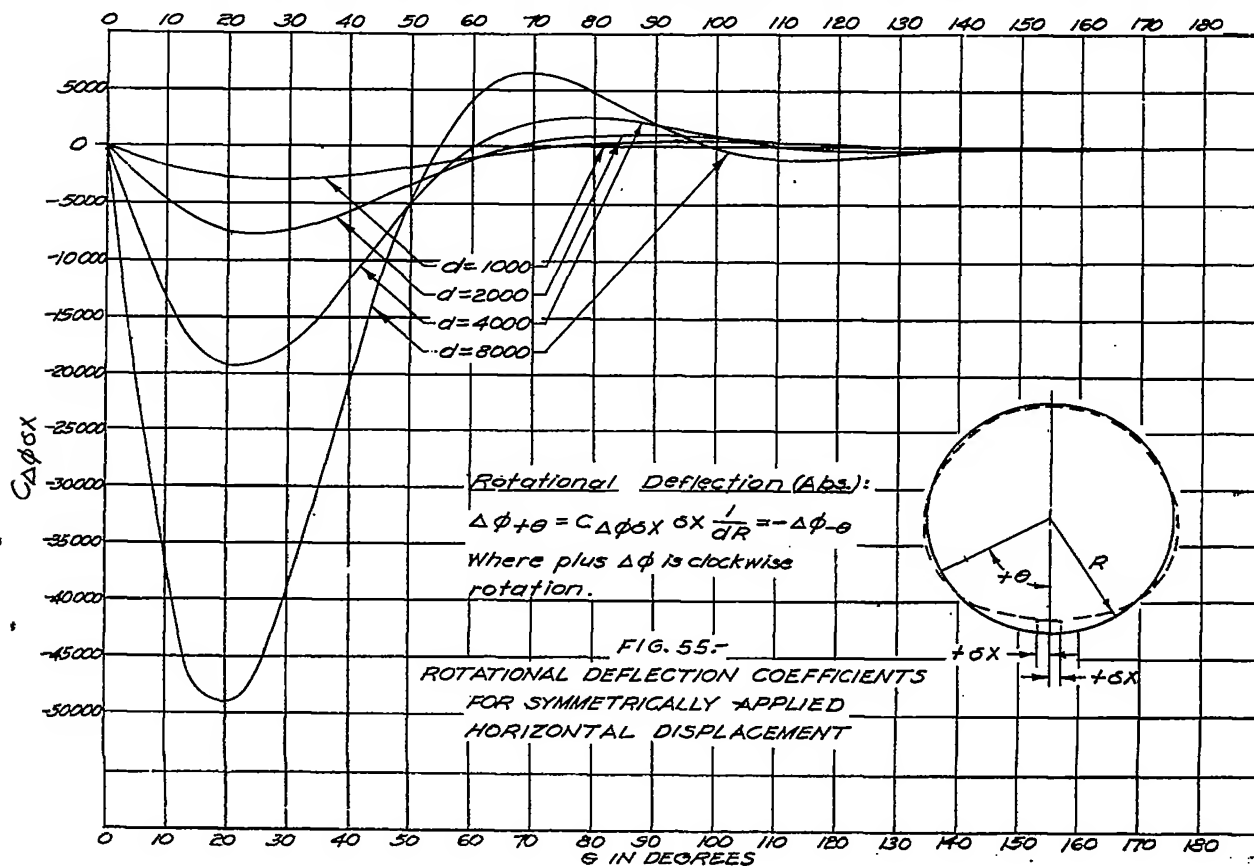 0 10 20 30 40 50 60 70 80 90 100 110 120 130 140 150 160 170 180
5000
0
-5000
-10000
-15000
-20000
-25000
-30000
-35000
-40000
-45000
-50000
CΔφδX
d=1000
d=2000
d=4000
d=8000
Rotational Deflection (Abs.):
Δφ+θ = CΔφδX δX 1/dR = -Δφ-θ
Where plus Δφ is clockwise
rotation.
R
+θ
+δX
+δX
FIG. 55.-
ROTATIONAL DEFLECTION COEFFICIENTS
FOR SYMMETRICALLY APPLIED
HORIZONTAL DISPLACEMENT
0 10 20 30 40 50 60 70 80 90 100 110 120 130 140 150 160 170 180
θ IN DEGREES